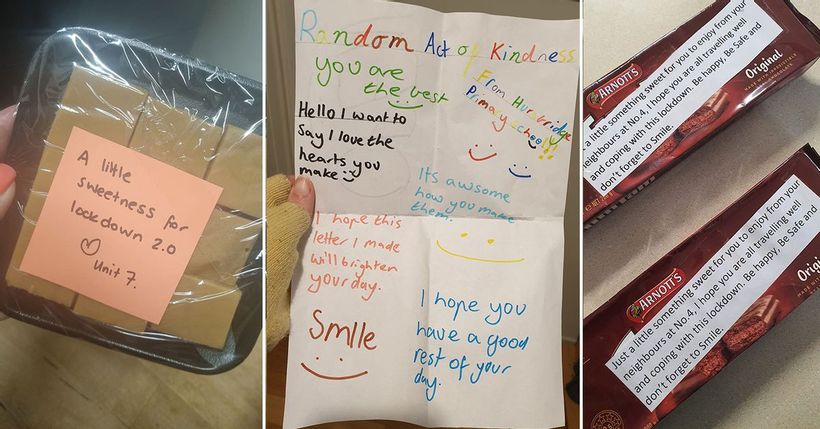 A little
sweetness for
lockdown 2.0
♡
Unit 7.
Random Act of Kindness
you are
the best
From Hurstbridge
Primary School!!
Hello I want to
say I love the
hearts you
make
Its awsome
how you make
them.
I hope this
letter I made
will brighten
your day.
Smile
I hope you
have a good
rest of your
day.
ARNOTT'S
Original
a little something sweet for you to enjoy from your
neighbours at No.4, I hope you are all travelling well
and coping with this lockdown. Be happy, Be Safe and
don't forget to Smile.
ARNOTT'S
Origi
Just a little something sweet for you to enjoy from your
neighbours at No.4, I hope you are all travelling well
and coping with this lockdown. Be happy, Be Safe and
don't forget to Smile.